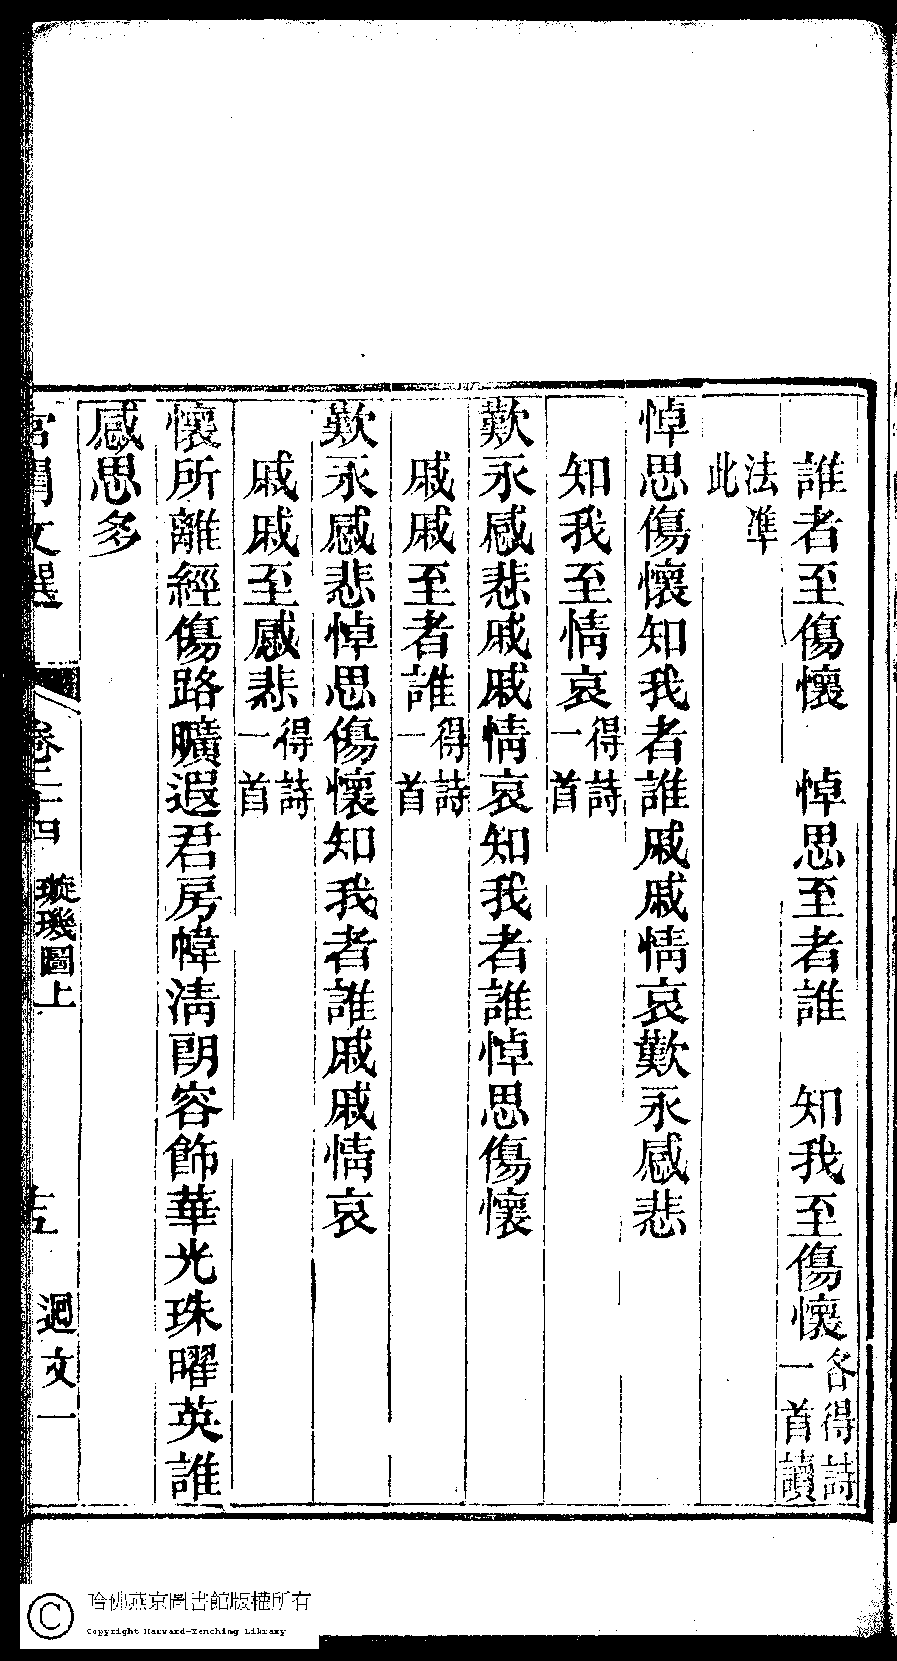 誰者至傷懷　悼思至者誰　知我至傷懷各得詩一首讀
法準此
悼思傷懷知我者誰戚戚情哀歎永感悲
知我至情哀得詩一首
歎永感悲戚戚情哀知我者誰悼思傷懷
戚戚至者誰得詩一首
歎永感悲悼思傷懷知我者誰戚戚情哀
戚戚至感悲得詩一首
懷所離經傷路曠遐君房幃清朗容飾華光珠曜英誰
感思多
宮閨文選　卷二十四　璇璣圖上　迴文一
哈佛燕京圖書館版權所有
Copyright Harvard-Yenching Library